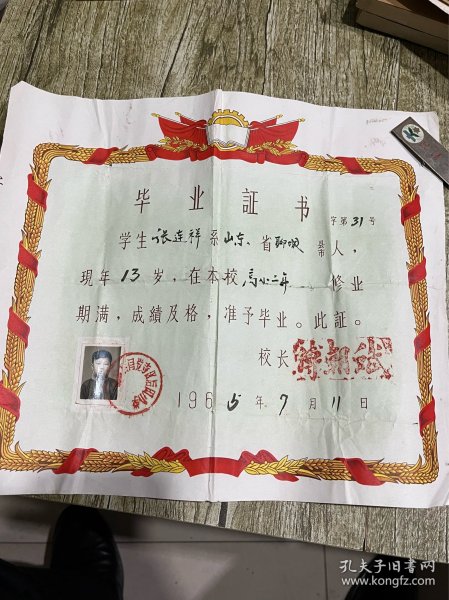 毕业証书
字第31号
学生张连祥系山东省聊城县市人，
現年13岁，在本校高小二年修业
期满，成績及格，准予毕业。此証。
校长
1965年7月11日
孔夫子旧书网
www.kongfz.com